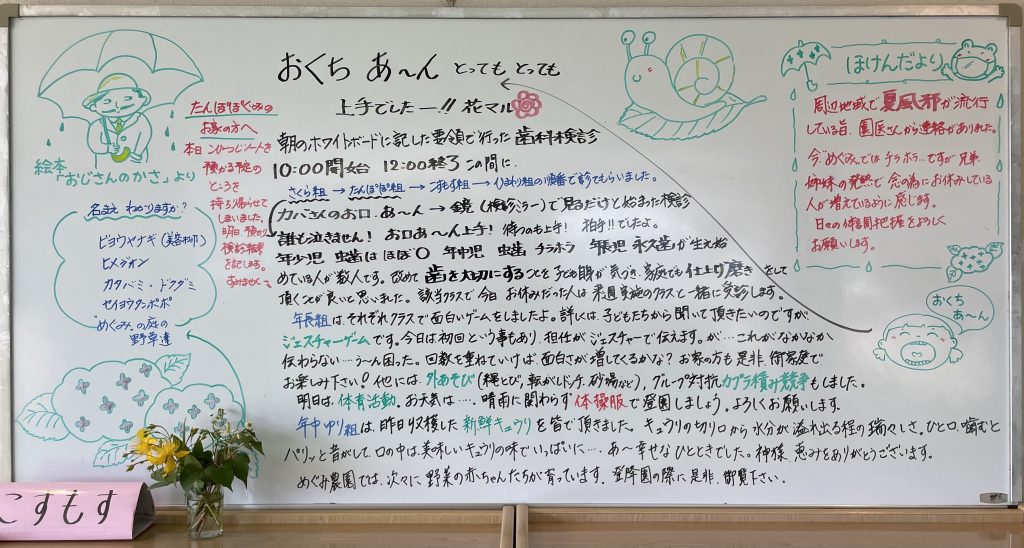 おくち あ〜ん とっても とっても
上手でしたー!! 花マル
朝のホワイトボードに記した要領で行った歯科検診
10:00開始 12:00終了 この間に、
さくら組→たんぽぽ組→こすもす組→ひまわり組の順番で診てもらいました。
カバさんのお口、あ〜ん→鏡(検診ミラー)で見るだけと始まった検診
誰も泣きません! お口あ〜ん上手! 待つのも上手! 拍手!!でしたよ。
年少児 虫歯はほぼ0 年中児 虫歯 チラホラ 年長児 永久歯が生え始
めている人が数人です。改めて歯を大切にすることを子ども達が気づき、家庭でも仕上げ磨きをして
頂くことが良いと思いました。該当クラスで今日お休みだった人は来週実施のクラスと一緒に受診します。
年長組は、それぞれクラスで面白いゲームをしましたよ。詳しくは、子どもたちから聞いて頂きたいのですが
ジェスチャーゲームです。今日は初回という事もあり、担任がジェスチャーで伝えます。が…これがなかなか
伝わらない…う〜ん困った。回数を重ねていけば、面白さが増してくるかな? お家の方も是非、御家庭で
お楽しみ下さい! 他には、外あそび(縄とび、転がしドッチ、砂場など)、グループ対抗カプラ積み競争もしました。
明日は、体育活動。お天気は…。晴雨に関わらず体操服で登園しましょう。よろしくお願いします。
年中ゆり組は、昨日収穫した新鮮キュウリを皆で頂きました。キュウリの切り口から水分が溢れ出る程の瑞々しさ。ひと口、噛むと
パリッと音がして、口の中は、美味しいキュウリの味でいっぱいに…。あ〜幸せなひとときでした。神様、恵みをありがとうございます。
めぐみ農園では、次々に野菜の赤ちゃんたちが育っています。登降園の際に是非、御覧下さい。
たんぽぽぐみの
お家の方へ
本日こひつじノートを
預かる予定の
ところを
持ち帰らせて
しまいました。
明日、預かり、
検診結果
を記します。
すみません〜。
絵本「おじさんのかさ」より
名まえ わかりますか?
ビヨウヤナギ(美容柳)
ヒメジオン
カタバミ・ドクダミ
セイヨウタンポポ
"めぐみ"の庭の
野草達
ほけんだより
周辺地域で夏風邪が流行
している旨、園医さんから連絡がありました。
今、"めぐみ"では チラホラ…ですが、兄弟、
姉妹の発熱で念の為にお休みしている
人が増えているように感じます。
日々の体調把握をよろしく
お願いします。
おくち
あ〜ん
こすもす